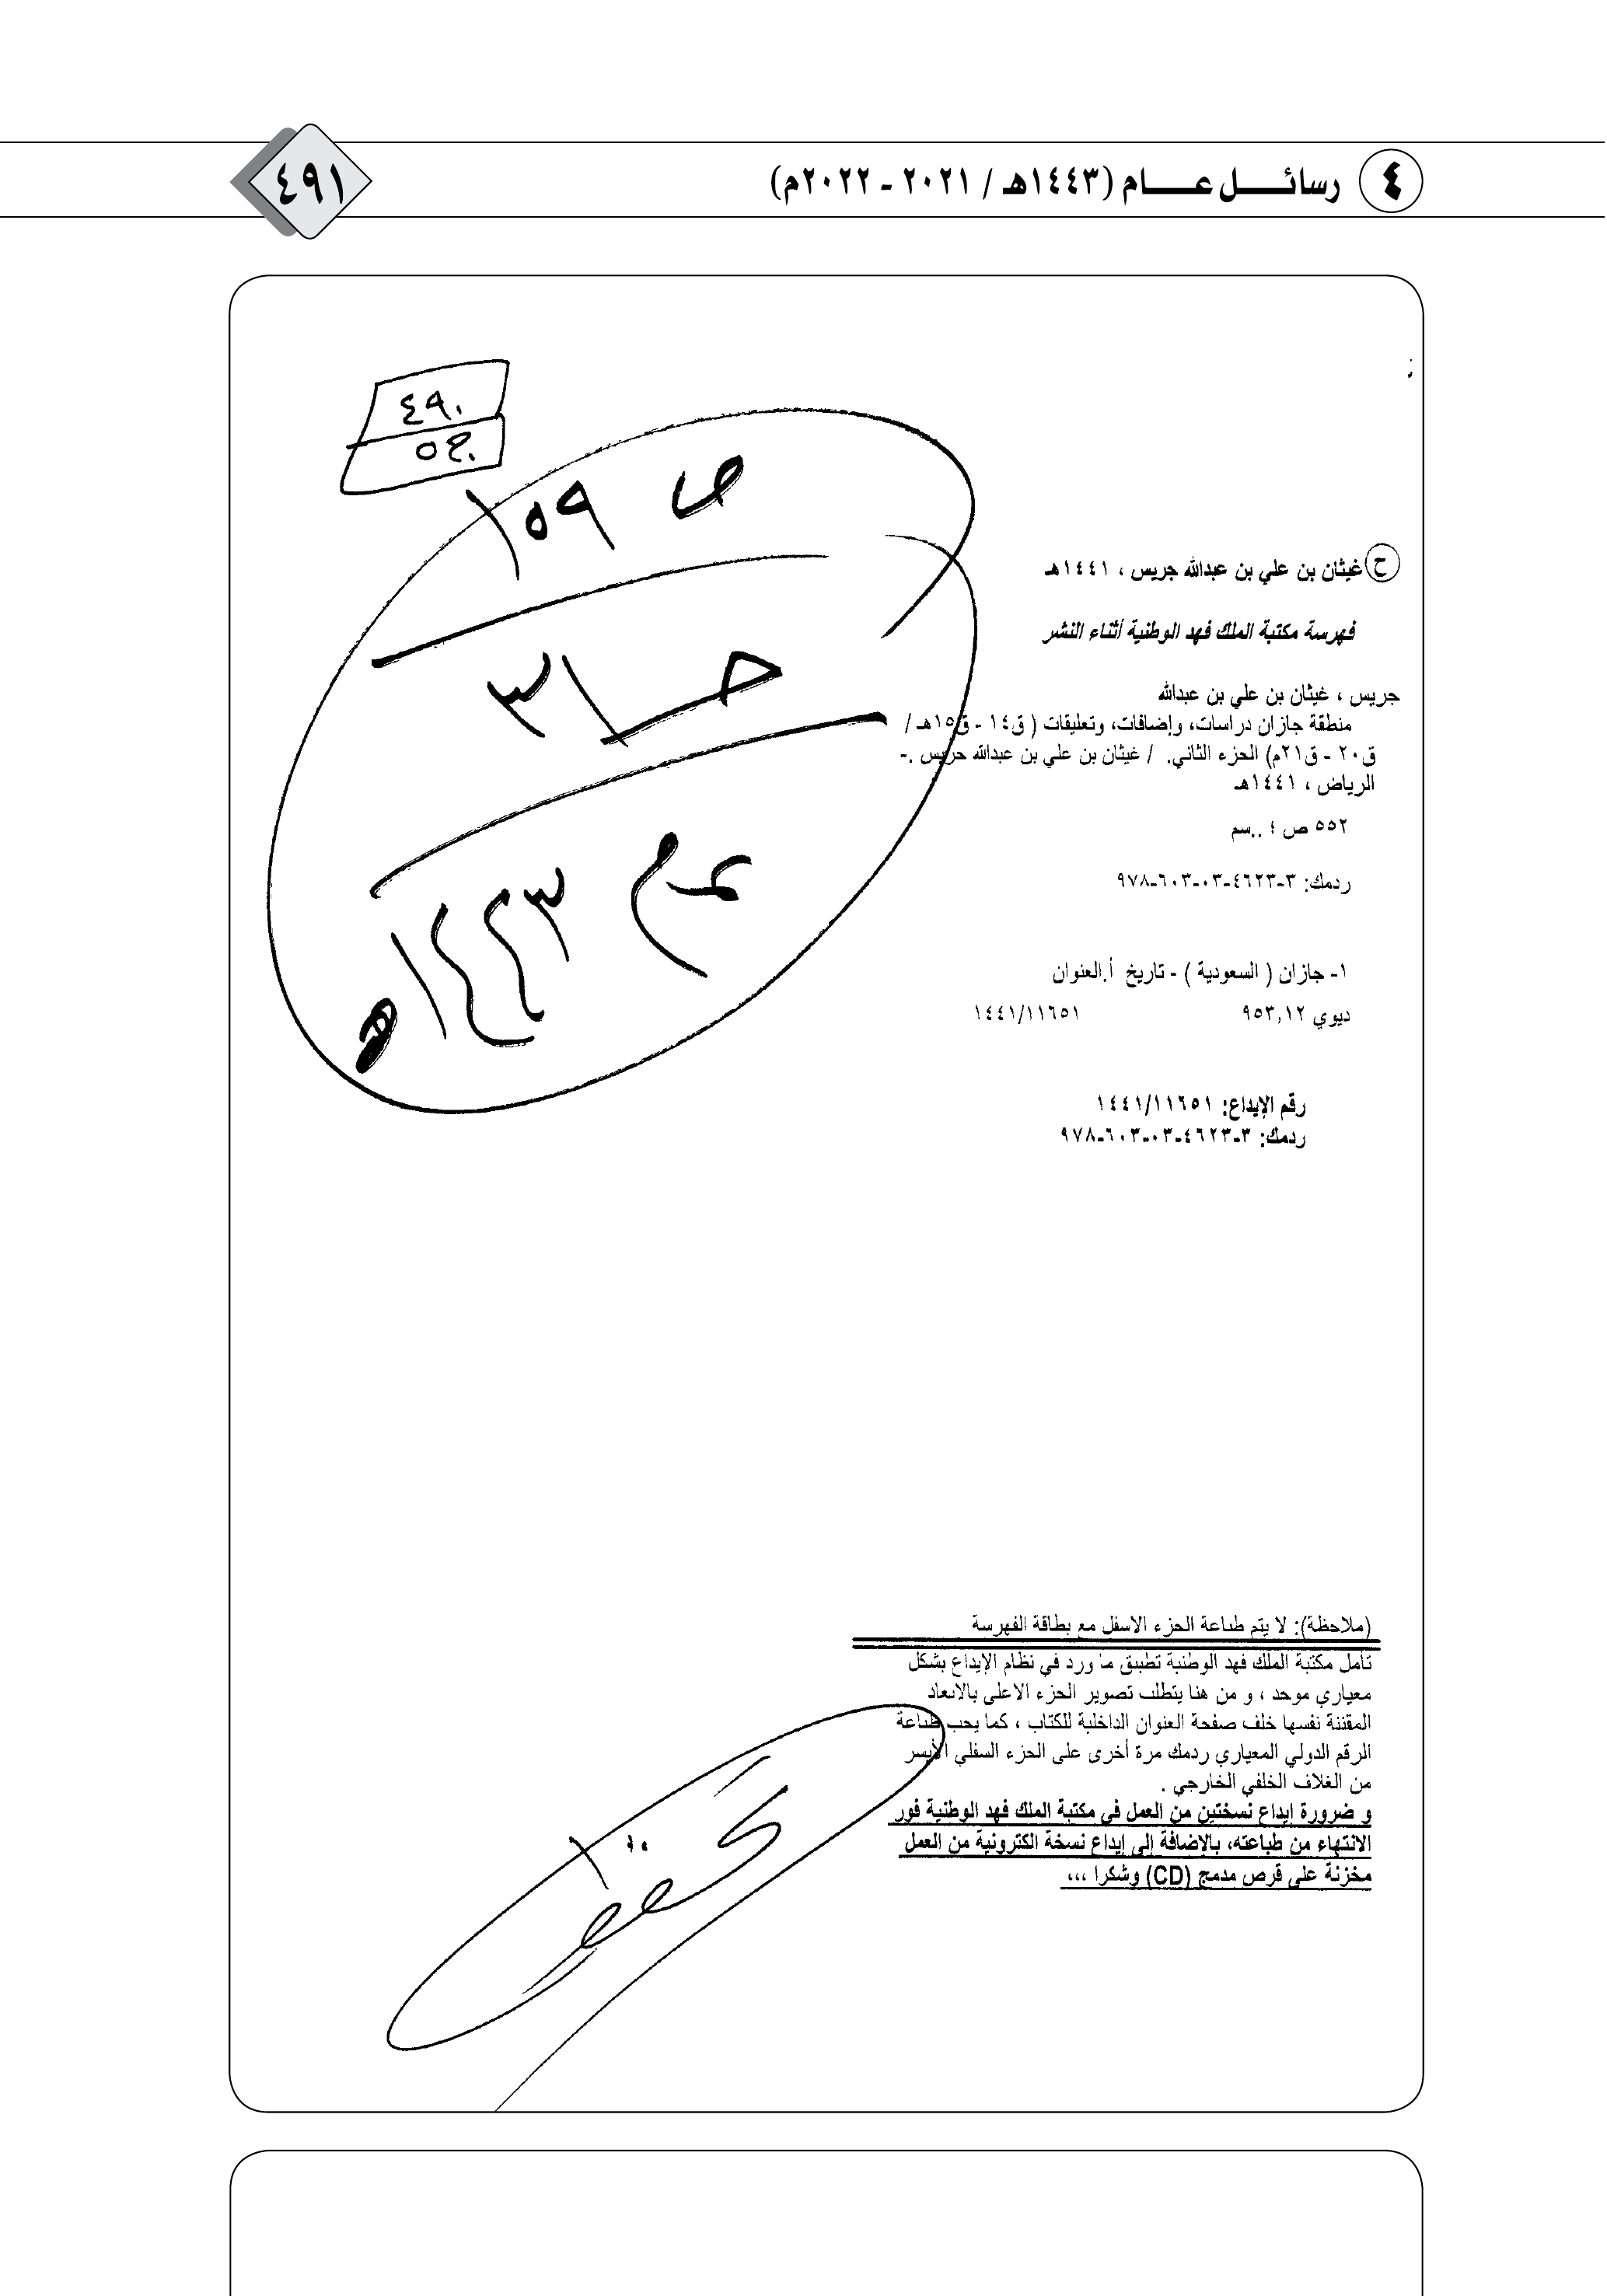 ٤ رسائــــل عــــــام (١٤٤٣هـ / ٢٠٢١ - ٢٠٢٢م)
٤٩١
٤٩٠
ص ١٥٩
حـ ٣١
عام ١٤٤٣هـ
ح غيثان بن علي بن عبدالله جريس ، ١٤٤١هـ
فهرسة مكتبة الملك فهد الوطنية أثناء النشر
جريس ، غيثان بن علي بن عبدالله
منطقة جازان دراسات، وإضافات، وتعليقات ( ق١٤ - ق١٥هـ /
ق٢٠ - ق٢١م) الجزء الثاني. / غيثان بن علي بن عبدالله جريس .-
الرياض ، ١٤٤١هـ
٥٥٢ ص ؛ ..سم
ردمك: ٣-٤٦٢٣-٠٣-٦٠٣-٩٧٨
١- جازان ( السعودية ) - تاريخ أ.العنوان
ديوي ٩٥٣,١٢ ١٤٤١/١١٦٥١
رقم الإيداع: ١٤٤١/١١٦٥١
ردمك: ٣-٤٦٢٣-٠٣-٦٠٣-٩٧٨
(ملاحظة): لا يتم طباعة الجزء الاسفل مع بطاقة الفهرسة
تأمل مكتبة الملك فهد الوطنية تطبيق ما ورد في نظام الإيداع بشكل
معياري موحد ، و من هنا يتطلب تصوير الجزء الاعلى بالابعاد
المقننة نفسها خلف صفحة العنوان الداخلية للكتاب ، كما يجب طباعة
الرقم الدولي المعياري ردمك مرة أخرى على الجزء السفلي الأيسر
من الغلاف الخلفي الخارجي .
و ضرورة إيداع نسختين من العمل في مكتبة الملك فهد الوطنية فور
الانتهاء من طباعته، بالإضافة إلى إيداع نسخة الكترونية من العمل
مخزنة على قرص مدمج (CD) وشكرا ،،،